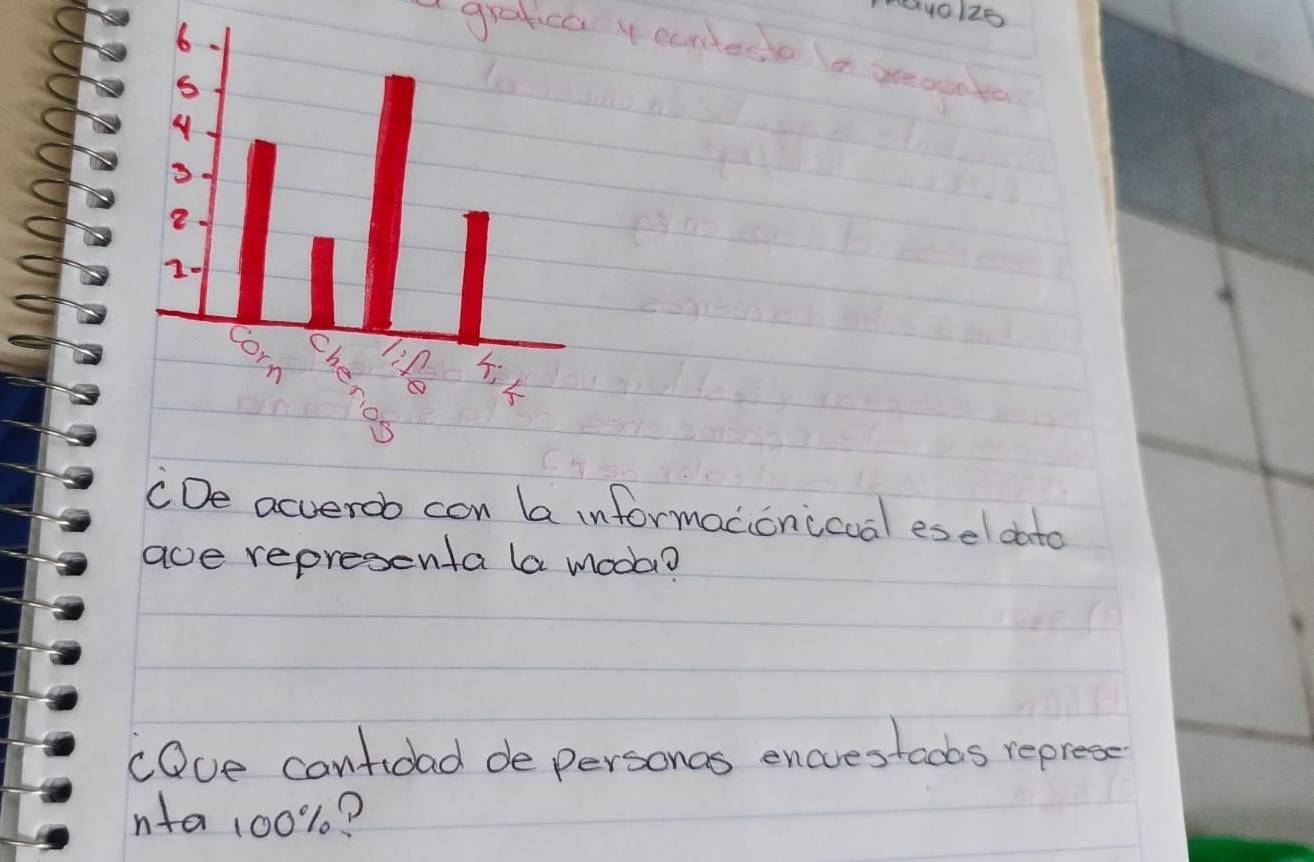 mayo/25
a grafica y contesta la pregunta
6
5
4
3
2
1
Corn
Cherios
life
kix
¿De acuerdo con la información¿cuál es el dato
que representa la moda?
¿Que cantidad de personas encuestadas represe-
nta 100%?